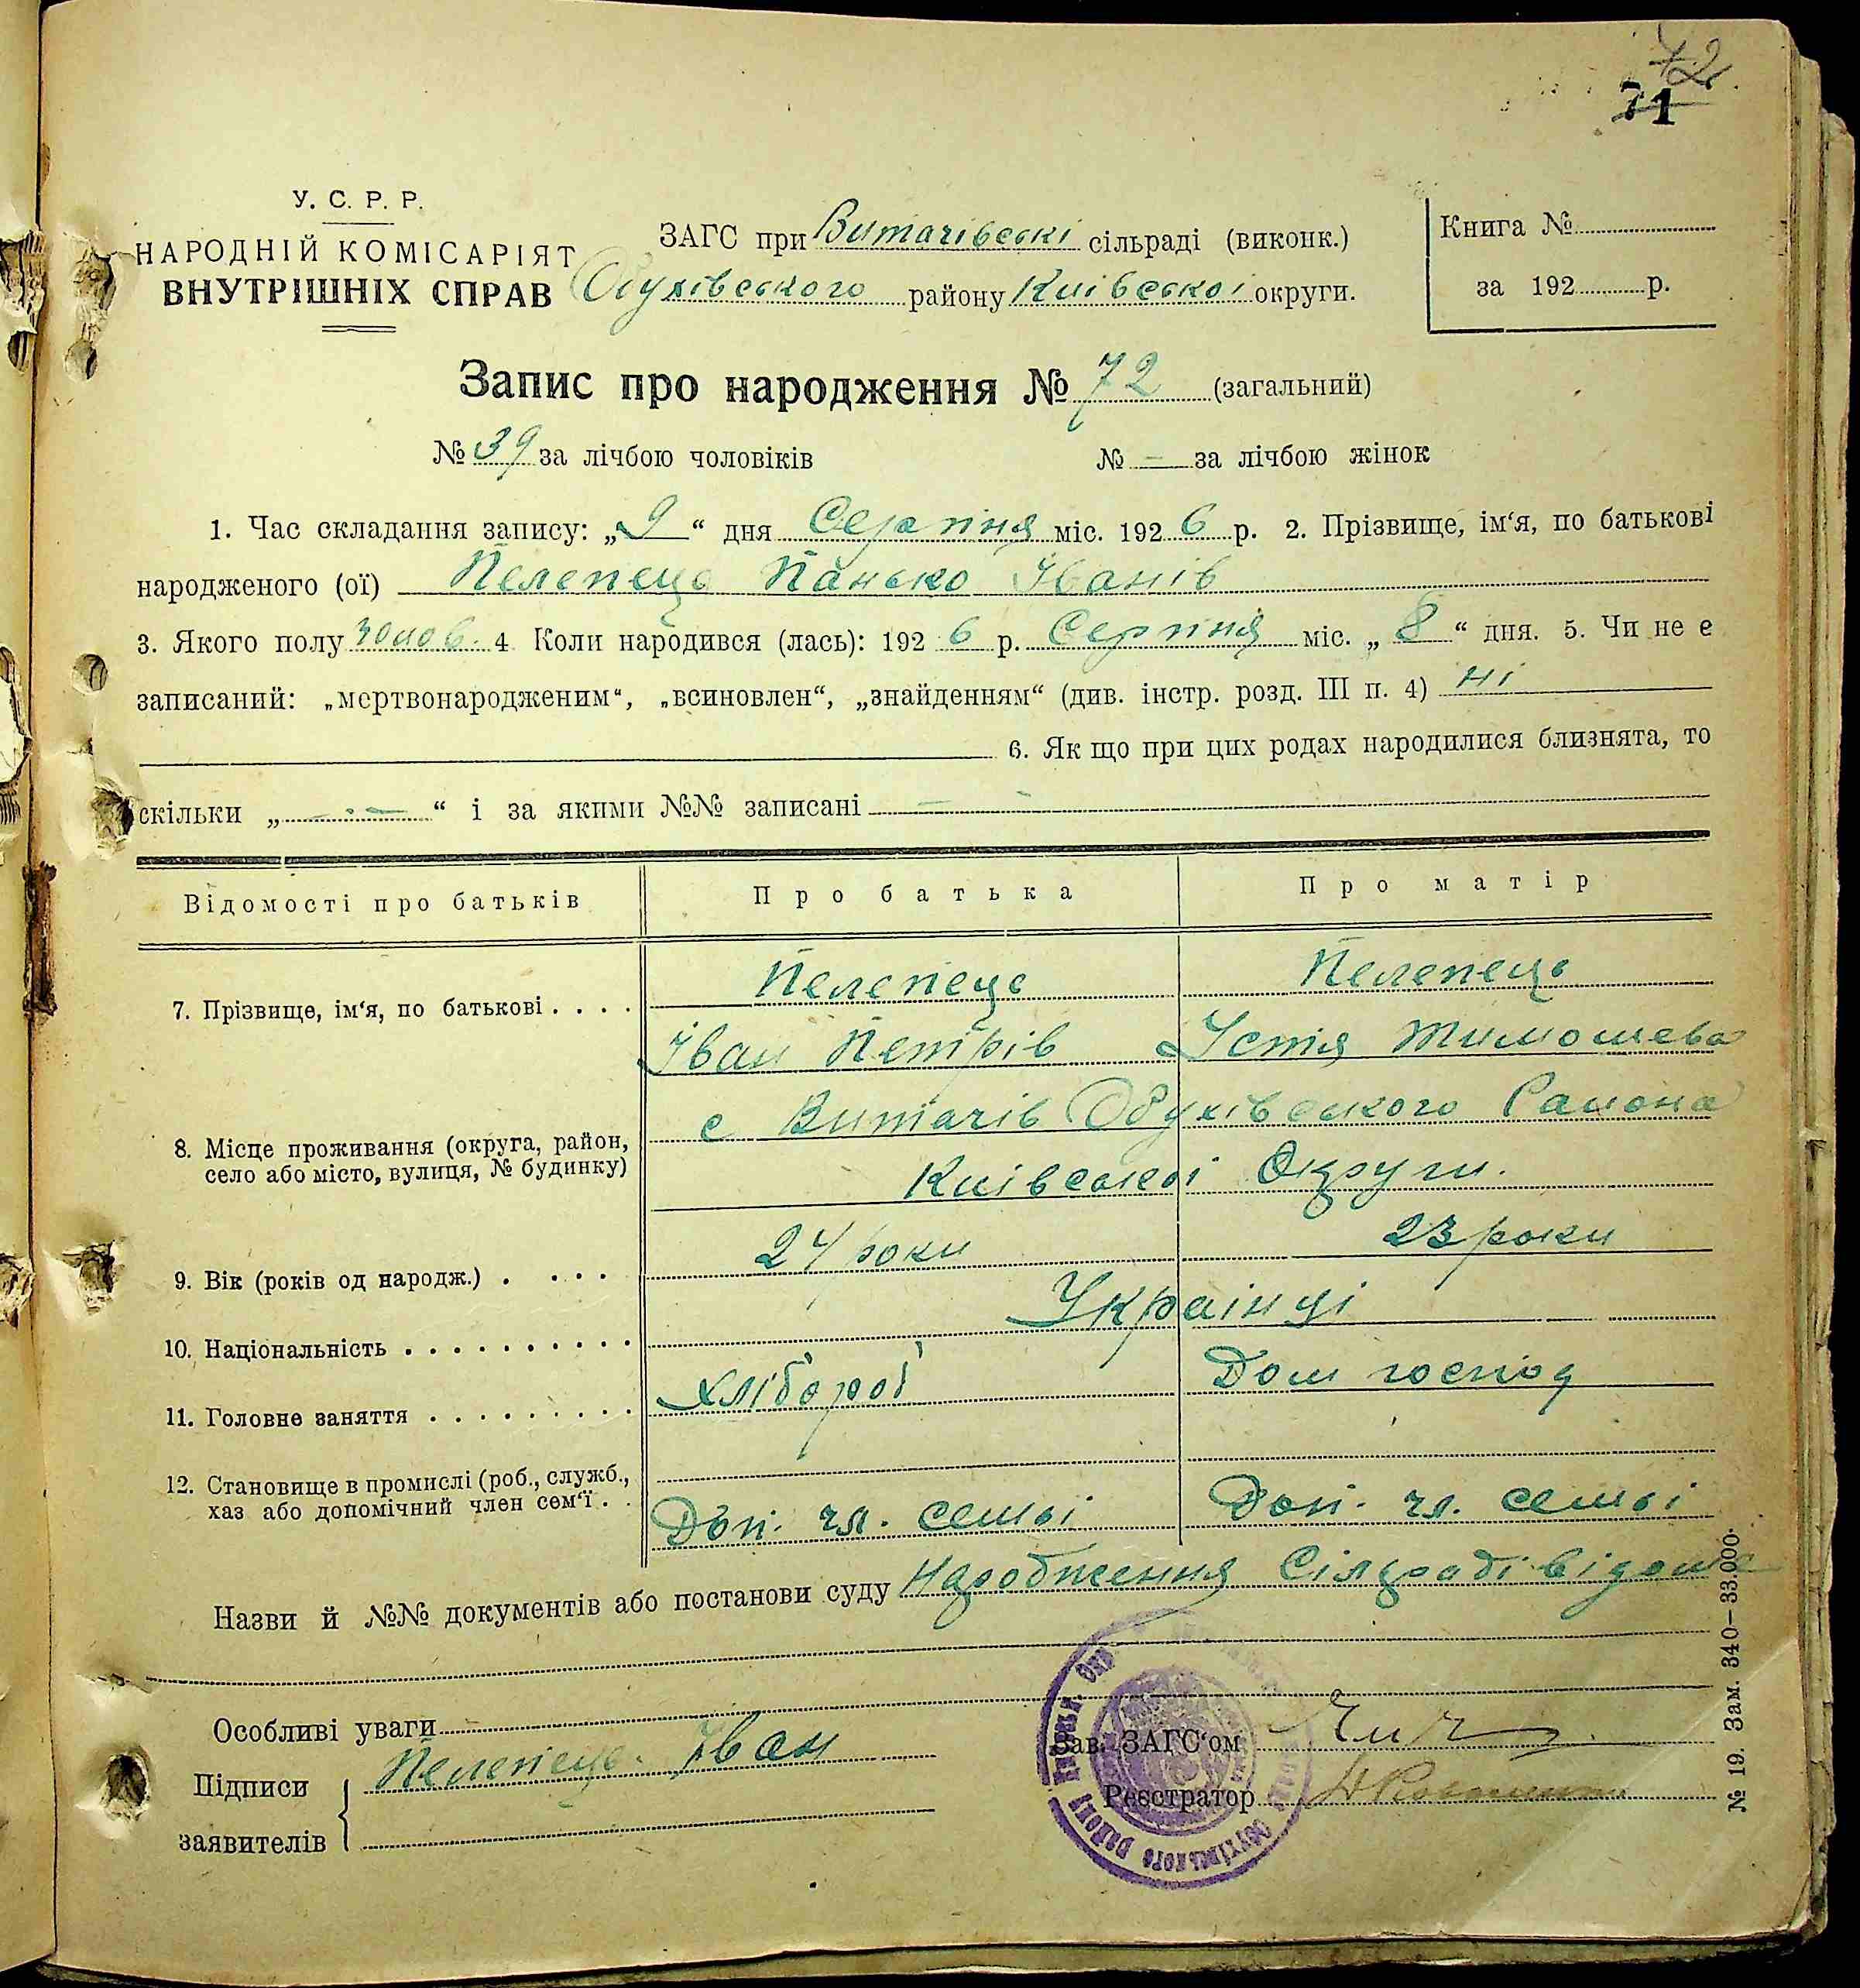 72
71
У. С. Р. Р.
НАРОДНІЙ КОМІСАРІЯТ
ВНУТРІШНІХ СПРАВ
ЗАГС при Витачівські сільраді (виконк.)
Обухівського району Київської округи.
Книга №
за 192 р.
Запис про народження № 72 (загальний)
№ 39 за лічбою чоловіків № — за лічбою жінок
1. Час складання запису: „9“ дня Серпня міс. 1926 р. 2. Прізвище, ім‘я, по батькові
народженого (ої) Пелепець Панько Іванів
3. Якого полу чолов. 4 Коли народився (лась): 1926 р. Серпня міс. „8“ дня. 5. Чи не є
записаний: „мертвонародженим“, „всиновлен“, „знайденням“ (див. інстр. розд. III п. 4) ні
6. Як що при цих родах народилися близнята, то
скільки „ — “ і за якими №№ записані —
Відомості про батьків Про батька Про матір
7. Прізвище, ім‘я, по батькові . . . . Пелепець Пелепець
Іван Петрів Устя Тимошева
8. Місце проживання (округа, район, село або місто, вулиця, № будинку) с Витачів Обухівського Района
Київської Округи.
9. Вік (років од народж.) . . . . 24 роки 23 роки
10. Національність . . . . . . . . . . Українці
11. Головне заняття . . . . . . . . . Хлібороб Дом господ
12. Становище в промислі (роб., служб.,
хаз або допомічний член сем‘ї . . Доп. чл. семьі Доп. чл. семьі
Назви й №№ документів або постанови суду Народження Сілраді відоме
Особливі уваги
Підписи
заявителів
Пелепець Іван
Зав. ЗАГС‘ом
Реєстратор
Обухівського району Київськ. Окр.
№ 19. Зам. 340–33.000.